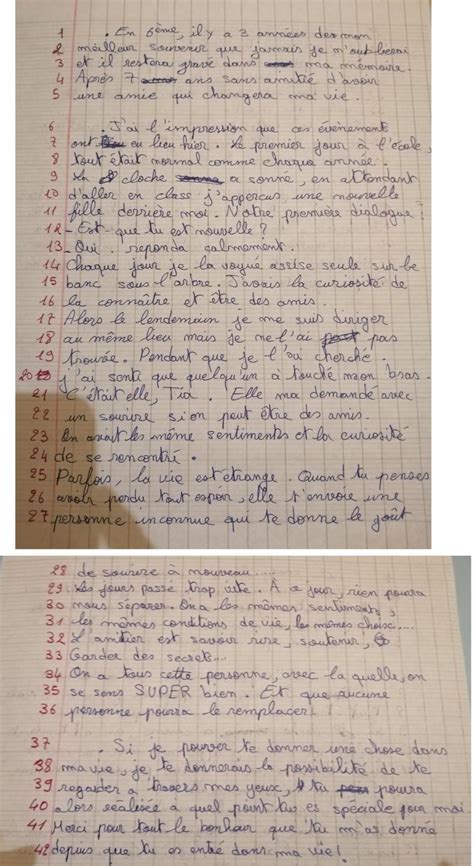 1 . En 6ème, il y a 3 années de mon
2 meilleur souvenir que jamais je m'oublierai
3 et il restera gravé dans ma mémoire.
4 Après 7 ans sans amitié d'avoir
5 une amie qui changera ma vie.
6 . J'ai l'impression que ces événements
7 ont eu lieu hier. Le premier jour à l'école,
8 tout était normal comme chaque année.
9 La cloche a sonné, en attendant
10 d'aller en class j'apperçus une nouvelle
11 fille derrière moi. Notre première dialogue:
12 - Est-que tu est nouvelle?
13 - Oui. reponda calmement.
14 Chaque jour je la voyué assise seule sur le
15 banc sous l'arbre. J'avais la curiosité de
16 la connaître et être des amis.
17 Alors le lendemain je me suis diriger
18 au même lieu mais je ne l'ai pas
19 trouvée. Pendant que je l'ai cherché.
20 j'ai senti que quelqu'un à touché mon bras.
21 C'était elle, Tia. Elle ma demandé avec
22 un sourire si on peut être des amis.
23 On avait les même sentiments et la curiosité
24 de se rencontré.
25 Parfois, la vie est étrange. Quand tu penses
26 avoir perdu tout espoir, elle t'envoie une
27 personne inconnue qui te donne le goût
28 de sourire à nouveau....
29 Les jours passé trop vite. À ce jour, rien pourra
30 nous séparer. On a les mêmes sentiments,
31 les mêmes conditions de vie, les mêmes choix...
32 L'amitier est savoir rire, soutenir,
33 Garder des secrets...
34 On a tous cette personne, avec la quelle, on
35 se sens SUPER bien. Et que aucune
36 personne pourra le remplacer!
37 . Si je pouver te donner une chose dans
38 ma vie, je te donnerais la possibilité de te
39 regarder a travers mes yeux, tu poura
40 alors réalisée a quel point tu es spéciale pour moi
41 Merci pour tout le bonheur que tu m'as donné
42 depuis que tu es entré dans ma vie!